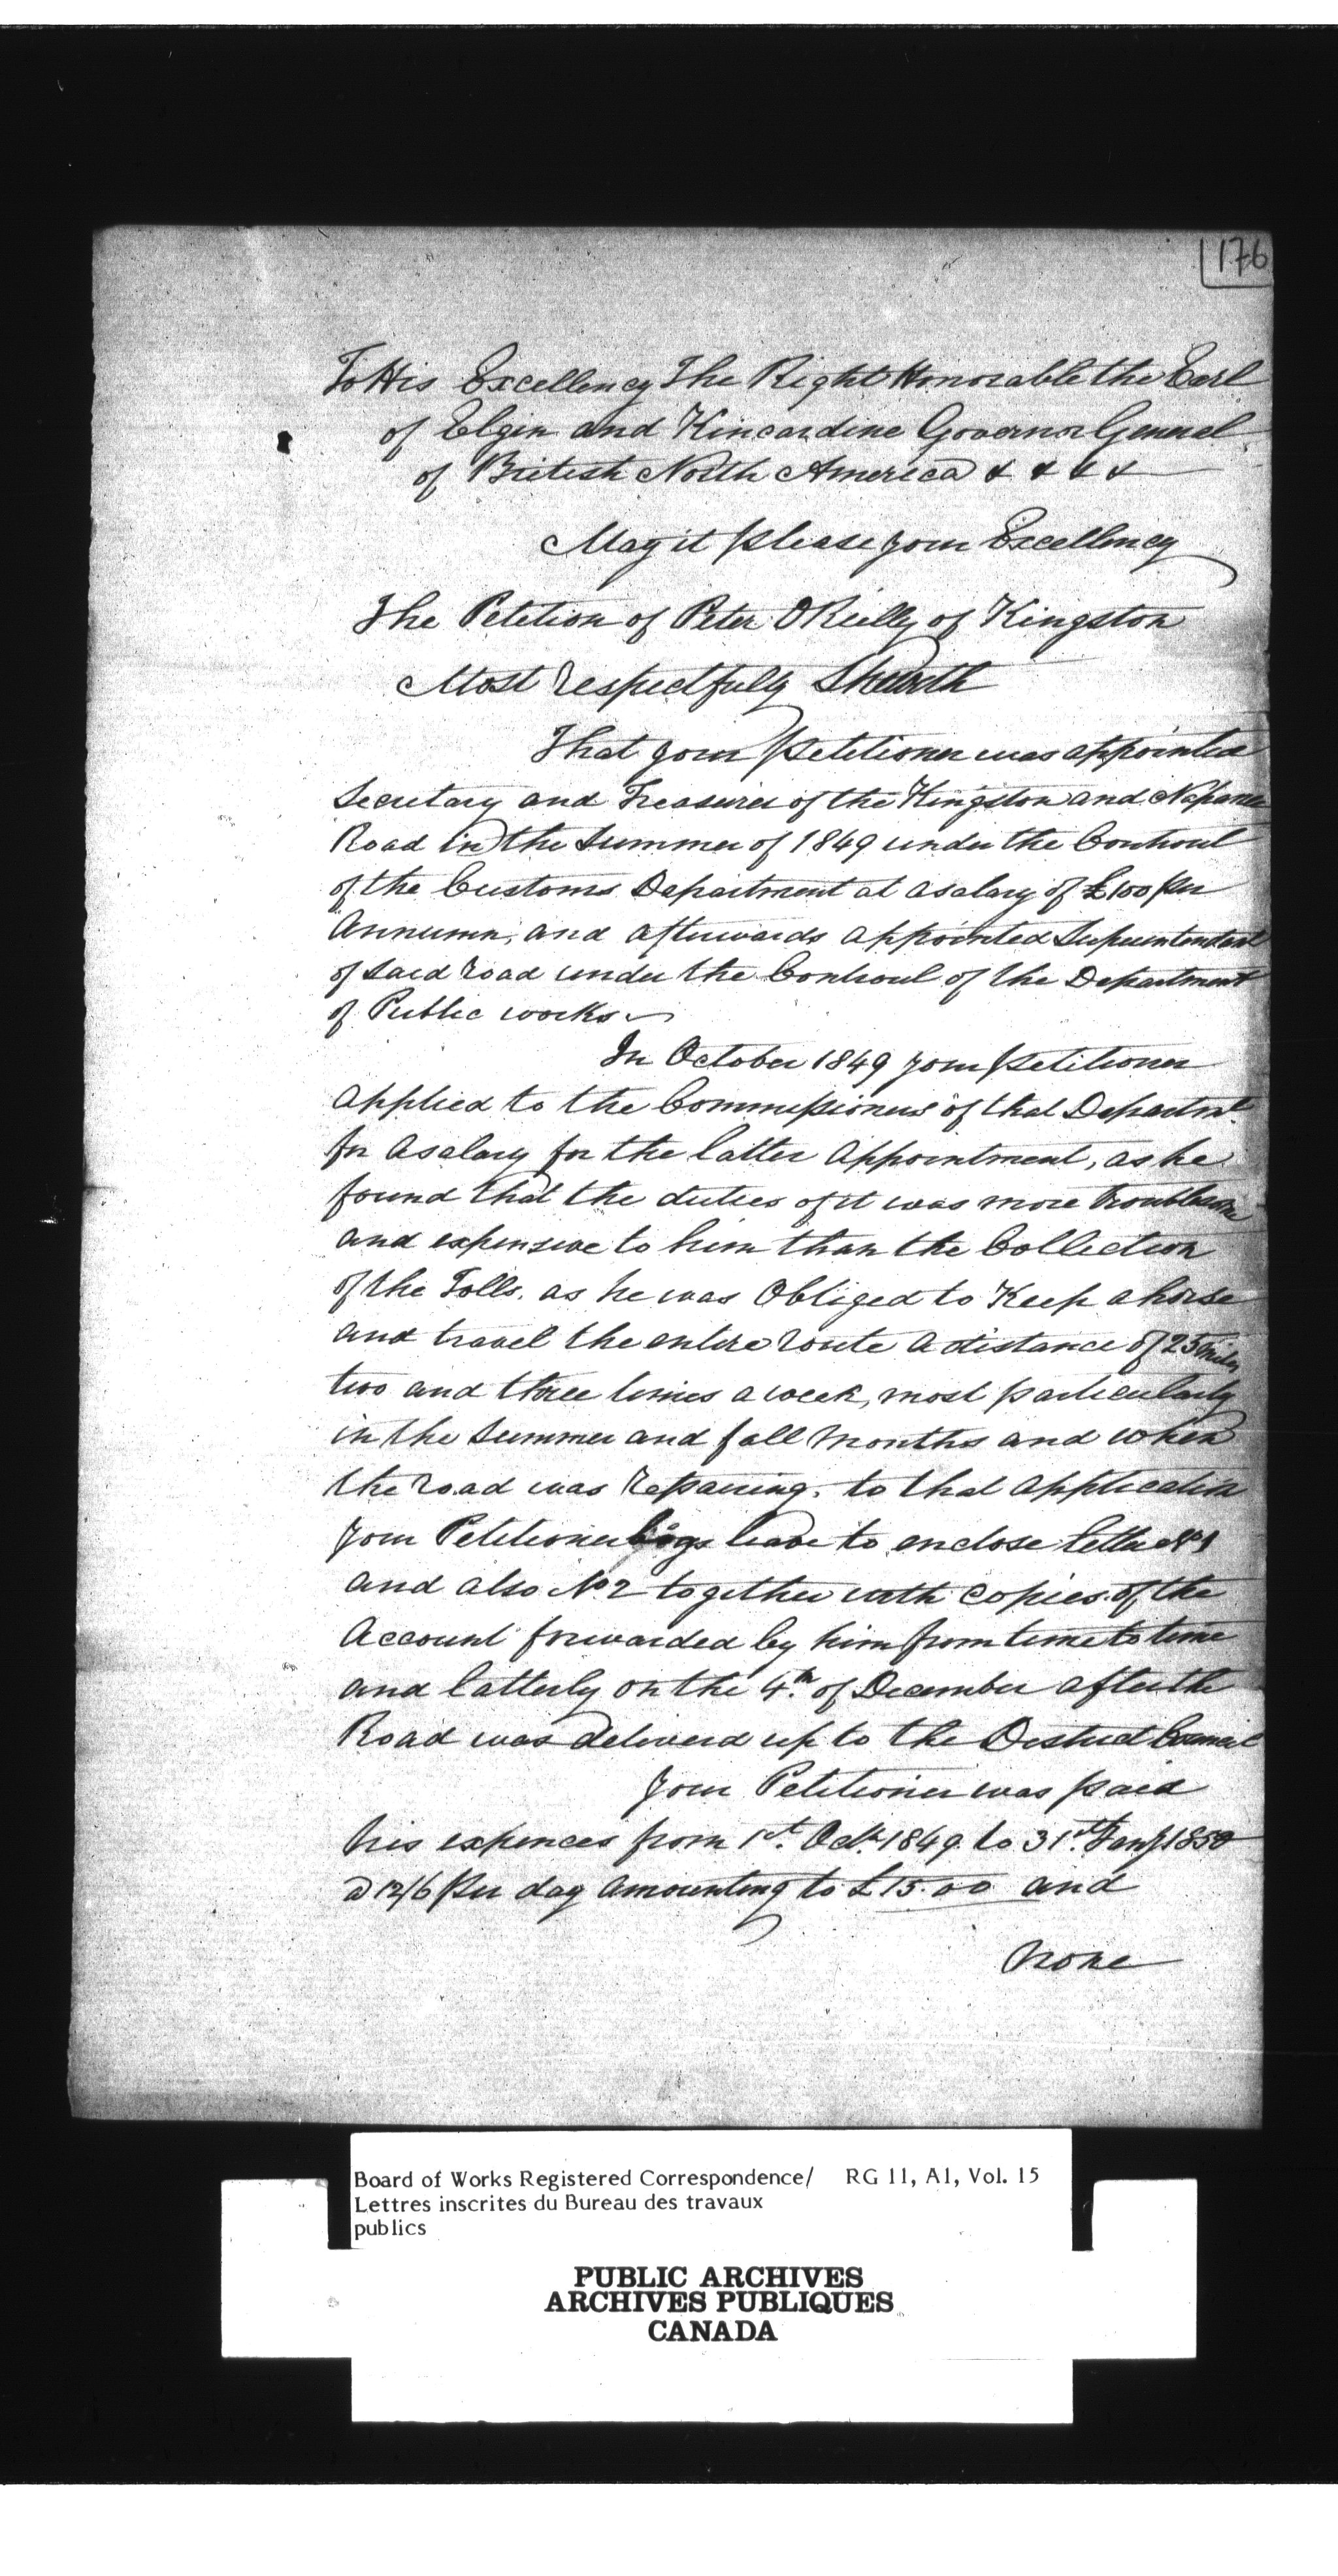 176
To His Excellency The Right Honorable the Earl
of Elgin and Kincardine Governor General
of British North America & & & &
May it please your Excellency
The Petition of Peter OReilly of Kingston
Most respectfully Sheweth
That your petitioner was appointed
Secretary and Treasurer of the Kingston and Napanee
Road in the Summer of 1849 under the Controul
of the Customs Department at a salary of £100 per
Annumn, and afterwards appointed Superintendent
of said road under the Controul of the Department
of Public works
In October 1849 your petitioner
applied to the Commissioners of that Departmt.
for a salary for the latter appointment, as he
found that the duties of it was more troublesome
and expensive to him than the Collection
of the Tolls, as he was Obliged to Keep a horse
and travel the entire route a distance of 25 miles
two and three times a week, most particularly
in the Summer and fall months and when
the road was repairing. to that application
your Petitioner begs leave to enclose letter No 1
and also No 2 together with copies of the
Account forwarded by him from time to time
and latterly on the 4th. of December after the
Road was deliverd up to the District Council
Your Petitioner was paid
his expences from 1st. Octr. 1849 to 31st. Jany 1850
@ 12/6 per day amounting to £15.00 and
none
Board of Works Registered Correspondence/ RG 11, A1, Vol. 15
Lettres inscrites du Bureau des travaux
publics
PUBLIC ARCHIVES
ARCHIVES PUBLIQUES
CANADA